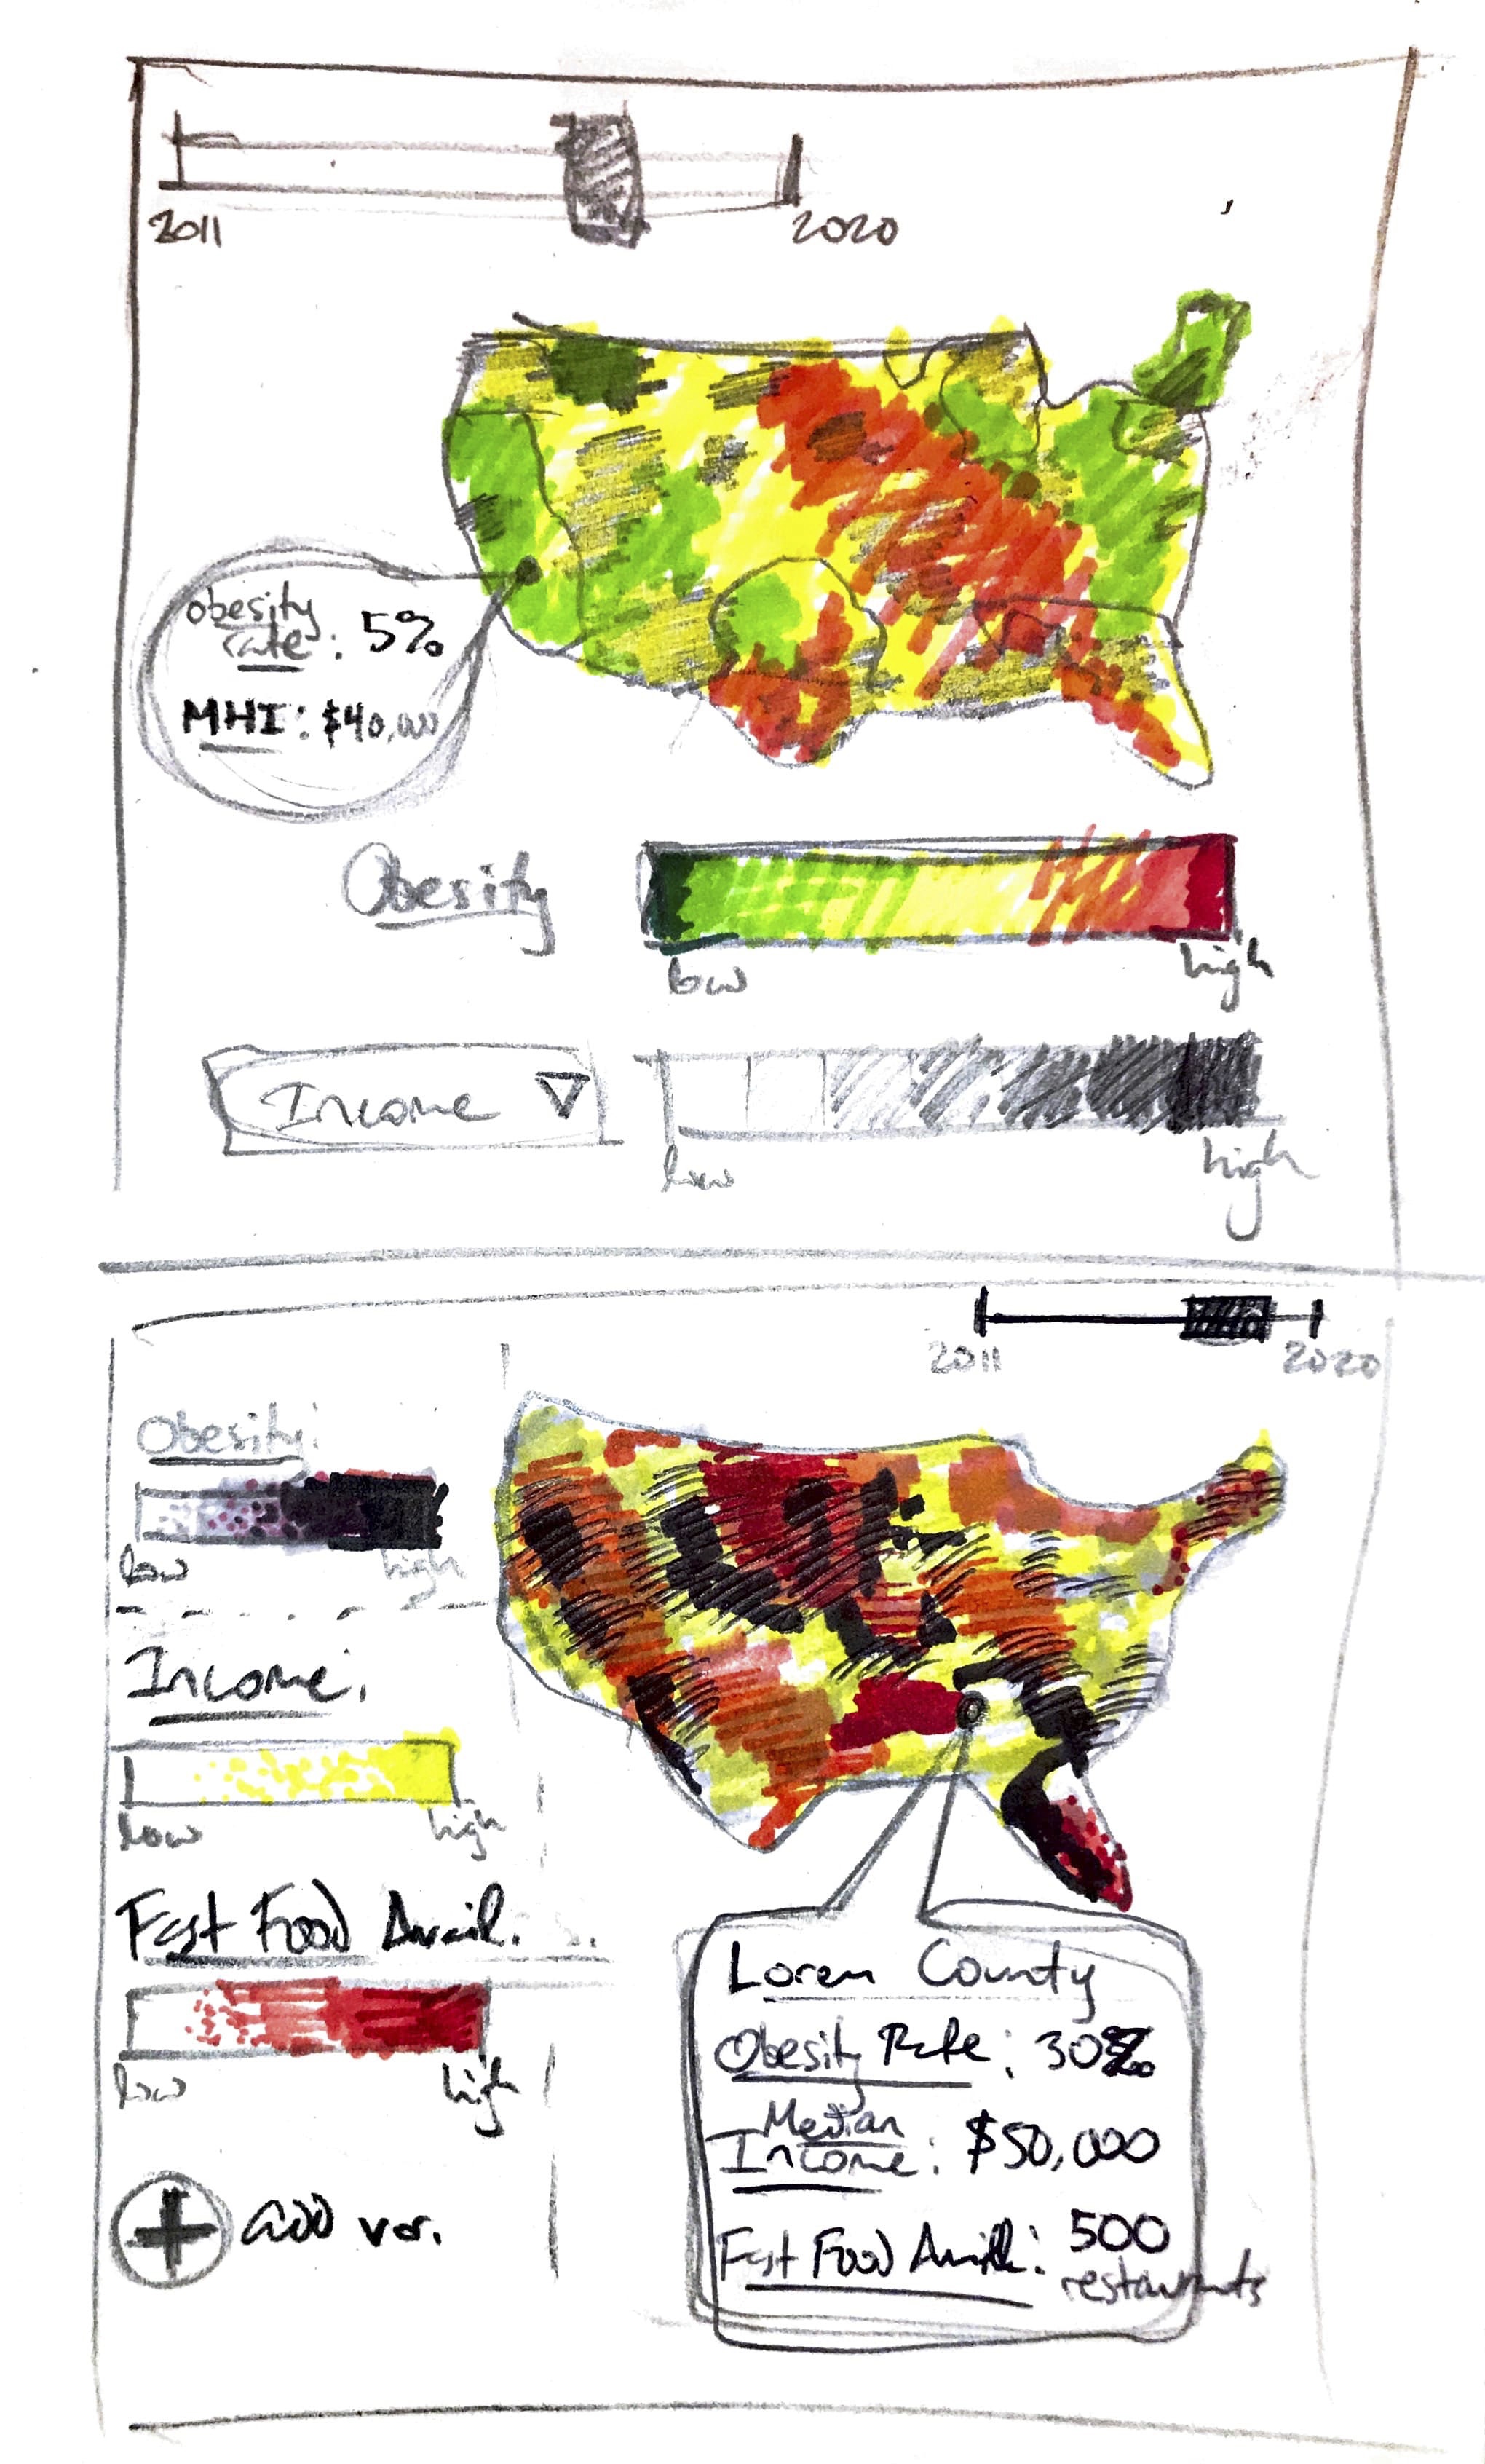 2011
2020
obesity
rate: 5%
MHI: $40,000
Obesity
low
high
Income
low
high
2011
2020
Obesity:
low
high
Income.
low
high
Fast Food Avail.
low
high
add var.
Loren County
Obesity Rate: 30%
Median
Income: $50,000
Fast Food Avail: 500
restaurants